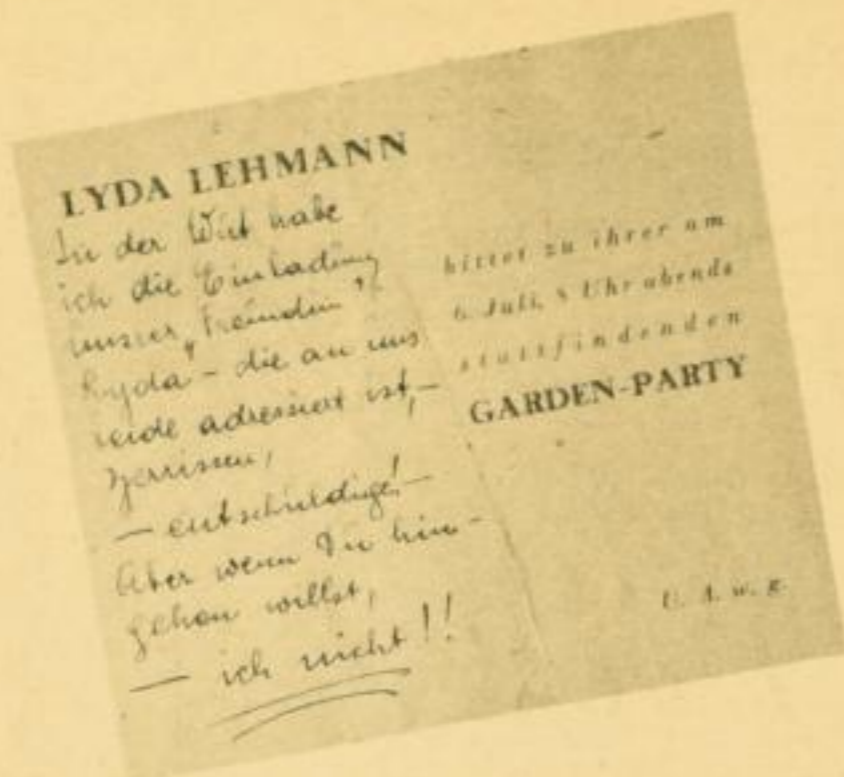 LYDA LEHMANN
In der Wut habe
ich die Einladung
unsrer „Freundin”
Lyda – die an uns
beide adressiert ist, –
zerrissen,
– entschuldige! –
Aber wenn Du hin-
gehen willst,
– ich nicht!!
bittet zu ihrer am
6. Juli, 8 Uhr abends
stattfindenden
GARDEN-PARTY
U. A. w. g.